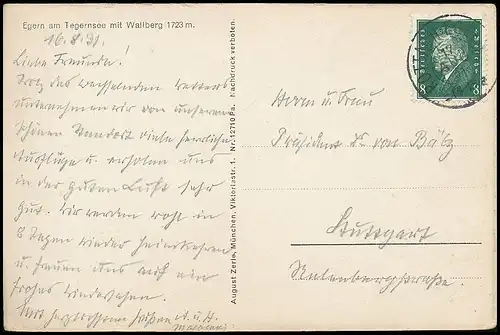 Egern am Tegernsee mit Wallberg 1723 m.
16.8.31.
Liebe Freunde!
Trotz des wechselnden Wetters
unternehmen wir von unserem
schönen Standort viele herrliche
Ausflüge u. erholen uns
in der guten Luft sehr
gut. Wir werden wohl in
8 Tagen wieder heimkehren
u. freuen uns auf ein
frohes Wiedersehen.
Mit herzlichen Grüßen
August Zerle, München, Viktoriastr. 1. Nr. 12710 Pa. Nachdruck verboten.
Deutsches Reich
8 8
Herrn u. Frau
Präsident Dr. von Bälz
Stuttgart